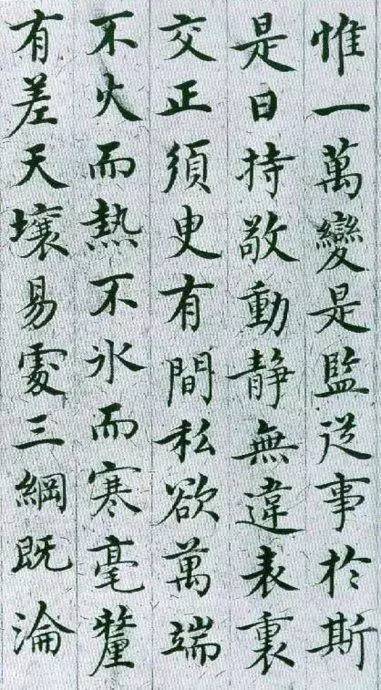 惟一萬變是監從事於斯
是曰持敬動靜無違表裏
交正須臾有間私欲萬端
不火而熱不氷而寒毫釐
有差天壤易處三綱既淪